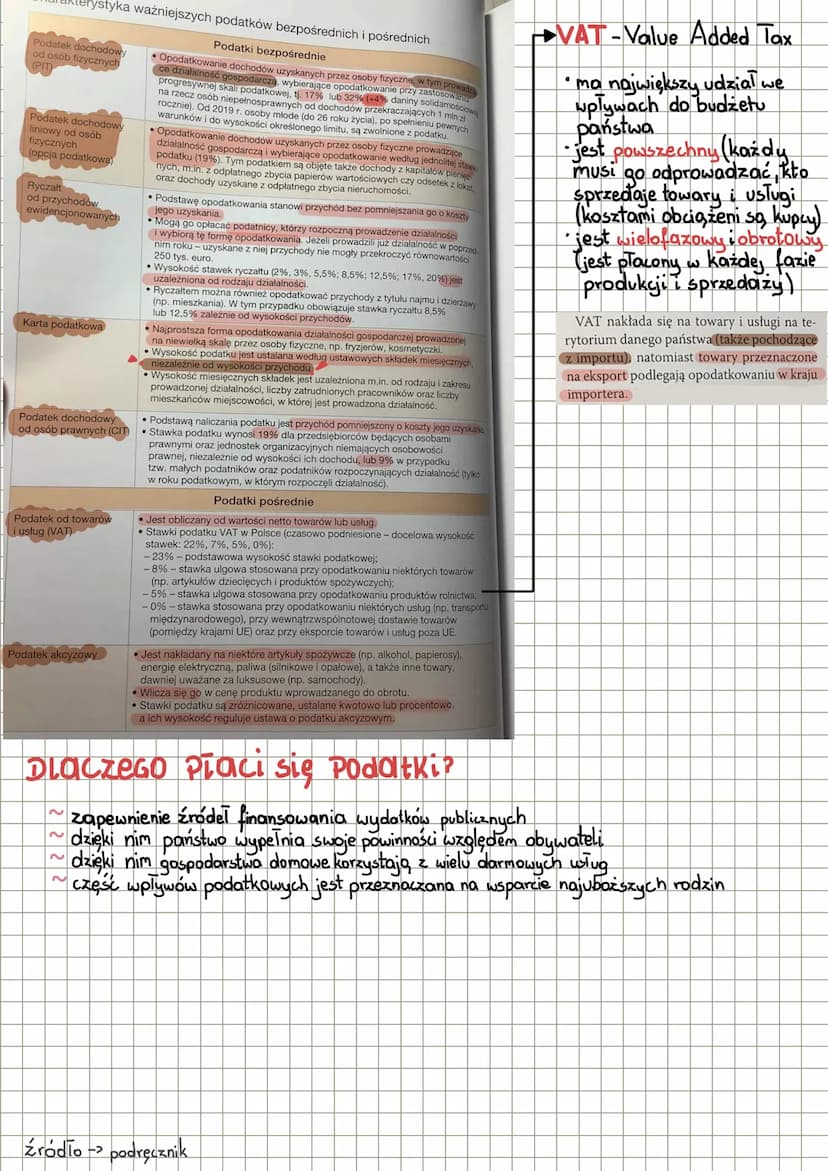 Charakterystyka ważniejszych podatków bezpośrednich i pośrednich
Podatki bezpośrednie
Podatek dochodowy
od osób fizycznych
(PIT)
• Opodatkowanie dochodów uzyskanych przez osoby fizyczne, w tym
ce działalność gospodarczą, wybierające opodatkowanie przy zastosowaniu
progresywnej skali podatkowej, tj. 17% lub 32% (+4% daniny solidarnościowej
na rzecz osób niepełnosprawnych od dochodów przekraczających 1 mln zł
rocznie). Od 2019 r. osoby młode (do 26 roku życia), po spełnieniu pewnych
warunków i do wysokości określonego limitu, są zwolnione z podatku.
Podatek dochodowy
liniowy od osób
fizycznych
(opcja podatkowa)
• Opodatkowanie dochodów uzyskanych przez osoby fizyczne prowadzące
działalność gospodarczą i wybierające opodatkowanie według jednolitej
podatku (19%). Tym podatkiem są objęte także dochody z kapitałów
nych, m.in. z odpłatnego zbycia papierów wartościowych czy odsetek z lokat,
oraz dochody uzyskane z odpłatnego zbycia nieruchomości.
Ryczałt
od przychodów
ewidencjonowanych
• Podstawę opodatkowania stanowi przychód bez pomniejszania go o koszty
jego uzyskania.
• Mogą go opłacać podatnicy, którzy rozpoczną prowadzenie działalności
i wybiorą tę formę opodatkowania. Jeżeli prowadzili już działalność w poprzed-
nim roku – uzyskane z niej przychody nie mogły przekroczyć równowartości
250 tys. euro.
• Wysokość stawek ryczałtu (2%, 3%, 5,5%; 8,5%; 12,5%; 17%, 20%) jest
uzależniona od rodzaju działalności.
• Ryczałtem można również opodatkować przychody z tytułu najmu i dzierżawy
(np. mieszkania). W tym przypadku obowiązuje stawka ryczałtu 8,5%
lub 12,5% zależnie od wysokości przychodów.
Karta podatkowa
• Najprostsza forma opodatkowania działalności gospodarczej prowadzonej
na niewielką skalę przez osoby fizyczne, np. fryzjerów, kosmetyczki.
• Wysokość podatku jest ustalana według ustawowych składek miesięcznych,
niezależnie od wysokości przychodu.
• Wysokość miesięcznych składek jest uzależniona m.in. od rodzaju i zakresu
prowadzonej działalności, liczby zatrudnionych pracowników oraz liczby
mieszkańców miejscowości, w której jest prowadzona działalność.
Podatek dochodowy
od osób prawnych (CIT)
• Podstawą naliczania podatku jest przychód pomniejszony o koszty jego uzyskania.
• Stawka podatku wynosi 19% dla przedsiębiorców będących osobami
prawnymi oraz jednostek organizacyjnych niemających osobowości
prawnej, niezależnie od wysokości ich dochodu, lub 9% w przypadku
tzw. małych podatników oraz podatników rozpoczynających działalność (tylko
w roku podatkowym, w którym rozpoczęli działalność).
Podatki pośrednie
Podatek od towarów
i usług (VAT)
• Jest obliczany od wartości netto towarów lub usług.
• Stawki podatku VAT w Polsce (czasowo podniesione – docelowa wysokość
stawek: 22%, 7%, 5%, 0%):
– 23% – podstawowa wysokość stawki podatkowej;
– 8% – stawka ulgowa stosowana przy opodatkowaniu niektórych towarów
(np. artykułów dziecięcych i produktów spożywczych);
– 5% – stawka ulgowa stosowana przy opodatkowaniu produktów rolnictwa,
– 0% – stawka stosowana przy opodatkowaniu niektórych usług (np. transportu
międzynarodowego), przy wewnątrzwspólnotowej dostawie towarów
(pomiędzy krajami UE) oraz przy eksporcie towarów i usług poza UE.
Podatek akcyzowy
• Jest nakładany na niektóre artykuły spożywcze (np. alkohol, papierosy),
energię elektryczną, paliwa (silnikowe i opałowe), a także inne towary,
dawniej uważane za luksusowe (np. samochody).
• Wlicza się go w cenę produktu wprowadzanego do obrotu.
• Stawki podatku są zróżnicowane, ustalane kwotowo lub procentowo,
a ich wysokość reguluje ustawa o podatku akcyzowym.
VAT - Value Added Tax
• ma największy udział we
wpływach do budżetu
państwa
• jest powszechny (każdy
musi go odprowadzać, kto
sprzedaje towary i usługi
(kosztami obciążeni są kupcy)
• jest wielofazowy i obrotowy
(jest płacony w każdej fazie
produkcji i sprzedaży)
VAT nakłada się na towary i usługi na te-
rytorium danego państwa (także pochodzące
z importu), natomiast towary przeznaczone
na eksport podlegają opodatkowaniu w kraju
importera.
DLACZEGO PŁACI się PODATKI?
~ zapewnienie źródeł finansowania wydatków publicznych
~ dzięki nim państwo wypełnia swoje powinności względem obywateli
~ dzięki nim gospodarstwa domowe korzystają z wielu darmowych usług
~ część wpływów podatkowych jest przeznaczana na wsparcie najuboższych rodzin
źródło -> podręcznik